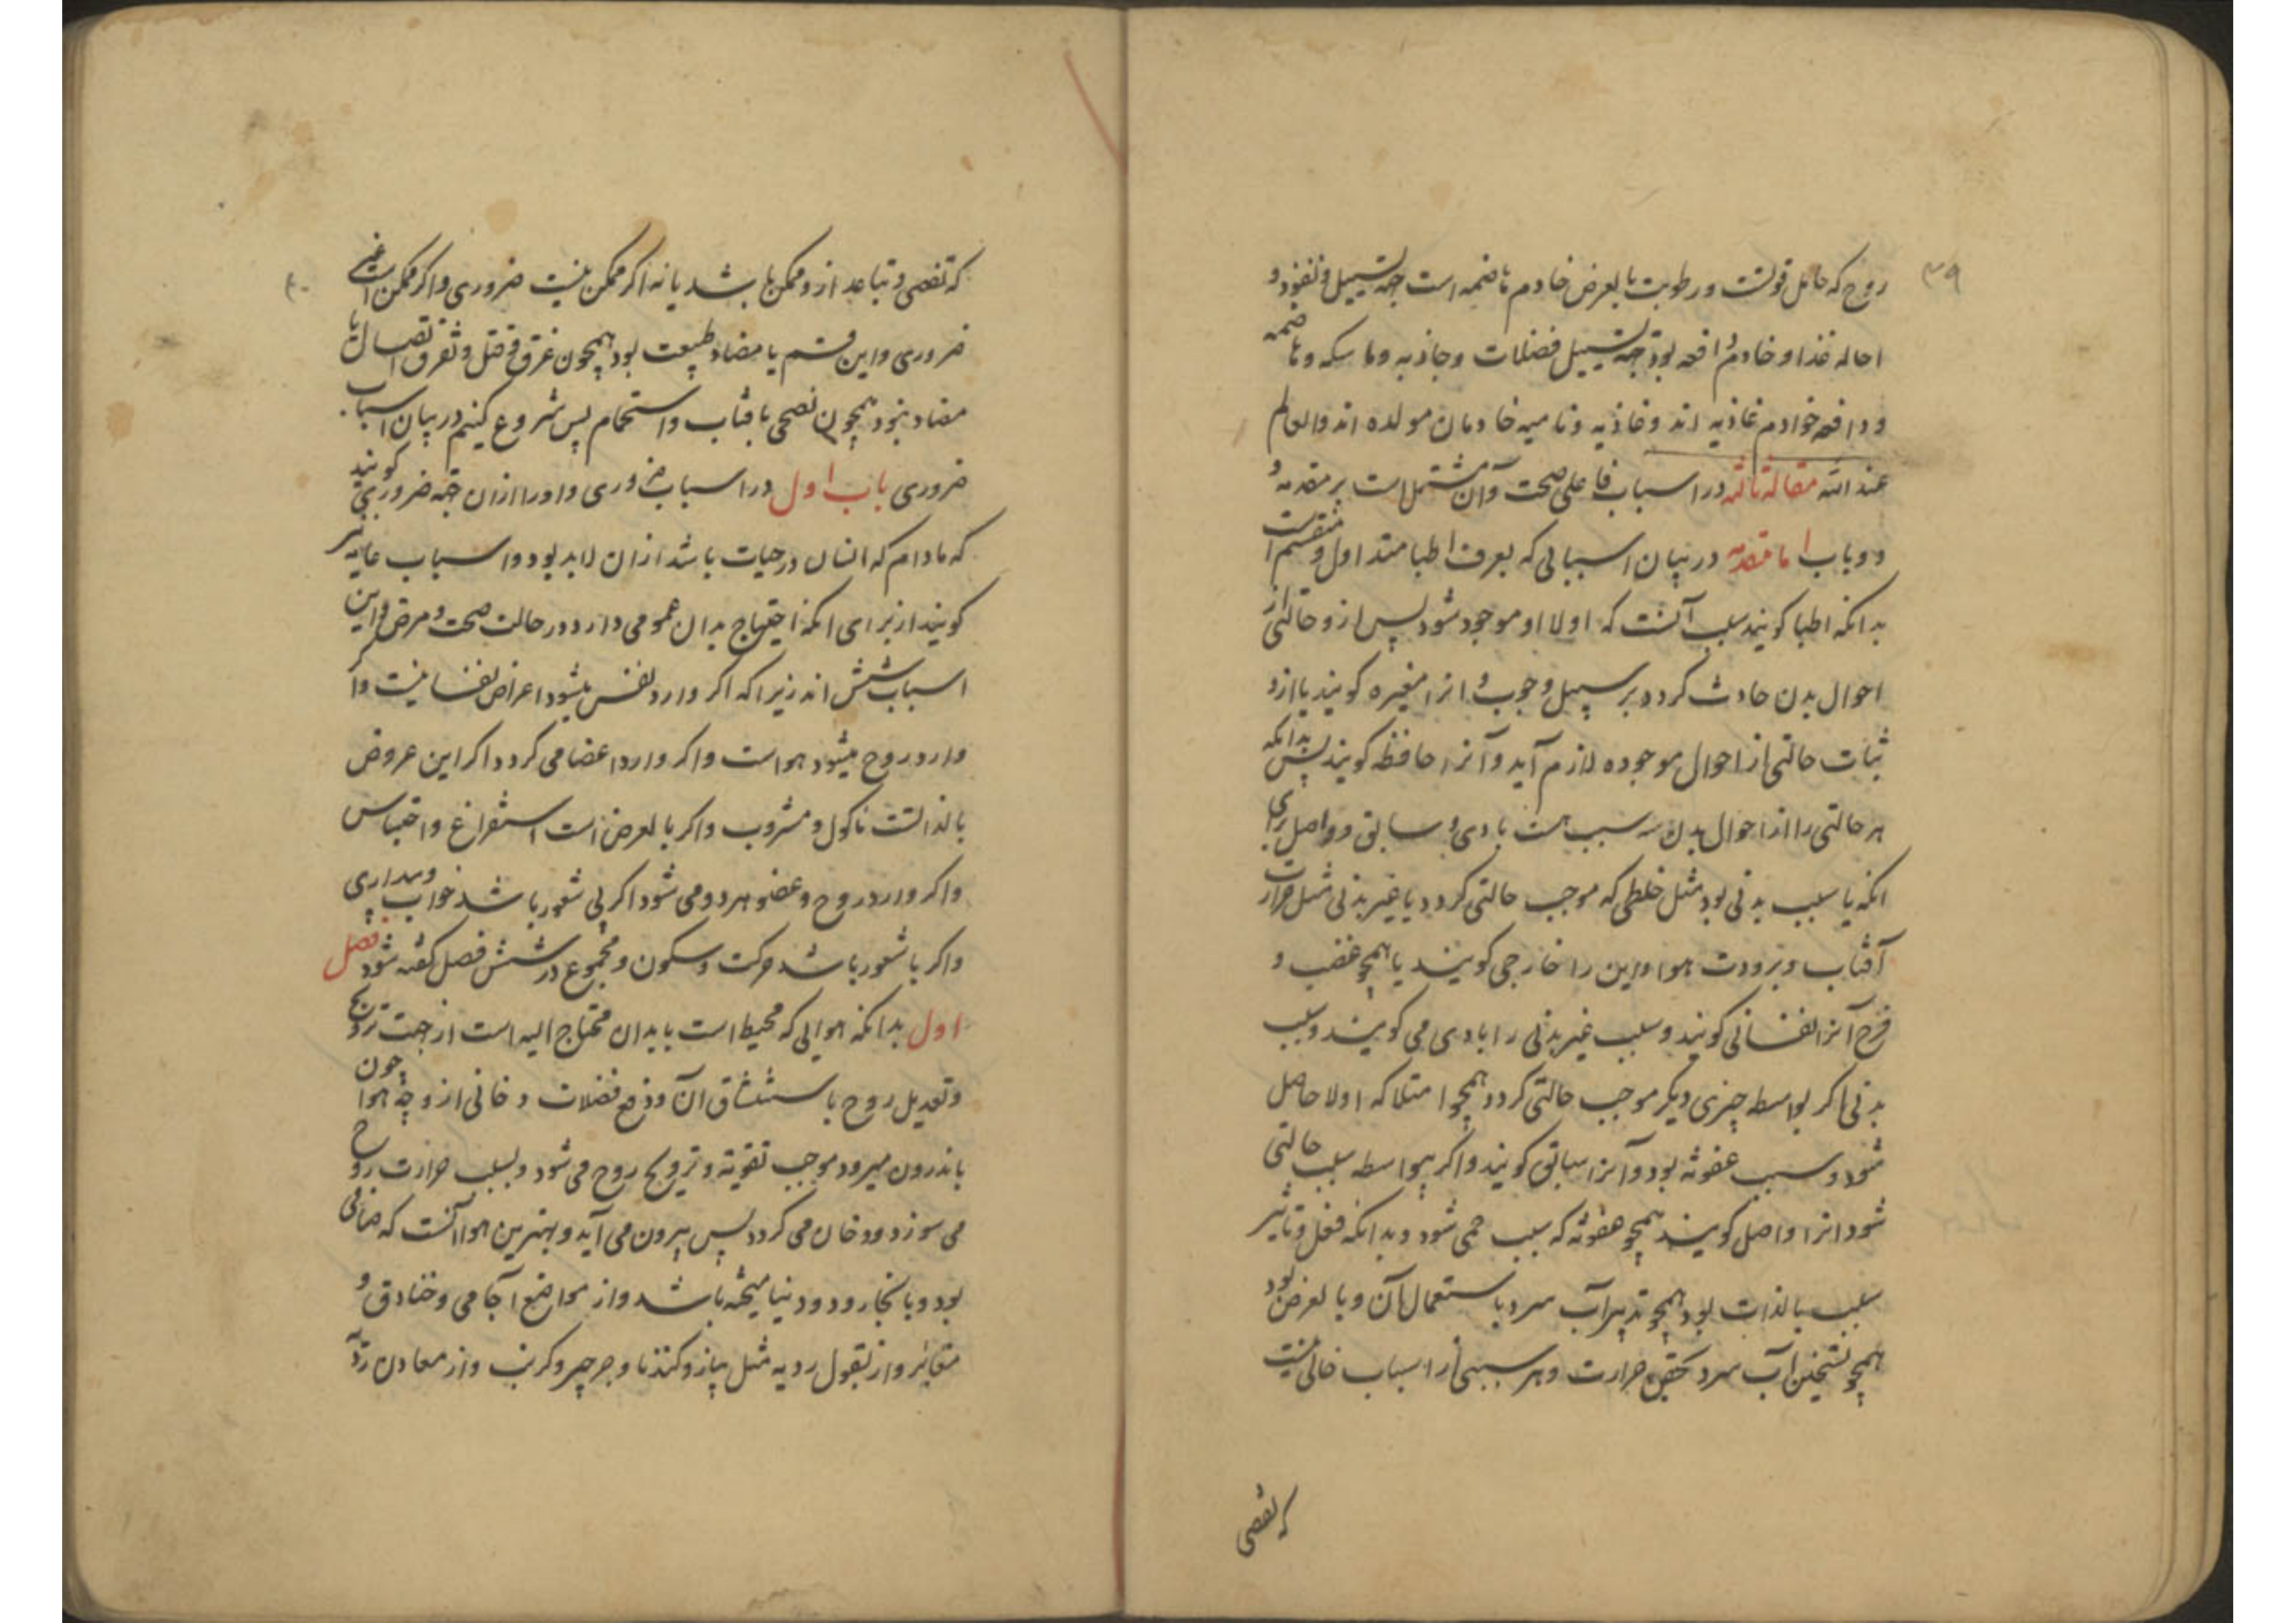 ۳۹
روح که حامل قوتست و رطوبت بالعرض خادم هاضمه است جهة تسییل و تنفیذ و
احاله غذا و خادم دافعه بود جهة تسییل فضلات و جاذبه و ماسکه و هاضمه
و دافعه خوادم غاذیه اند و غاذیه و نامیه خادمان مولده اند والعلم
عند الله مقالة ثالثه در اسباب فاعلی صحت و آن مشتمل است بر مقدمه و
دو باب اما مقدمه در بیان اسبابی که بعرف اطبا متداول و منقسم است
بدانکه اطبا کویند سبب آنست که اولا او موجود شود پس ازو حالتی از
احوال بدن حادث کردد بر سبیل وجوب و انرا مغیره کویند یا ازو
ثبات حالتی از احوال موجوده لازم آید و آنرا حافظه کویند پس بدانکه
هر حالتی را از احوال بدن سه سبب هست بادی و سابق و واصل برای
انکه یا سبب بدنی بود مثل خلطی که موجب حالتی کردد یا غیر بدنی مثل حرارت
آفتاب و برودت هوا و این را خارجی کویند یا همچو غضب و
فرح آنرا نفسانی کویند و سبب غیر بدنی را بادی می کویند و سبب
بدنی اکر بواسطه چیزی دیکر موجب حالتی کردد همچو امتلا که اولا حاصل
شود و سبب عفونة بود و آنرا سابق کویند و اکر بیواسطه سبب حالتی
شود انرا واصل کویند همچو عفونة که سبب حمی شود و بدانکه فعل و تاثیر
سبب بالذات بود همچو تدبیر آب سرد باستعمال آن و بالعرض بود
همچو تسخین آب سرد بحقن حرارت و هر سببی از اسباب خالی نیست
که تفصی
۴۰
که تفصی و تباعد ازو ممکن باشد یا نه اکر ممکن نیست ضروری و اکر ممکن است غیر
ضروری و این قسم یا مضاد طبیعت بود همچون غرق و قتل و تفرق اتصال یا
مضاد نبود همچون تضحی بافتاب و استحمام پس شروع کنیم در بیان اسباب
ضروری باب اول در اسباب ضروری و او را ازان جهة ضروری کویند
که مادام که انسان در حیات باشد ازان لابد بود و اسباب عامه نیز
کویند از برای انکه احتیاج بدان عمومی دارد در حالت صحت و مرض و این
اسباب شش اند زیرا که اکر وارد نفس میشود اعراض نفسانیست و اکر
وارد روح میشود هواست و اکر وارد اعضا می کردد اکر این عروض
بالذاتست ماکول و مشروب و اکر بالعرض است استفراغ و احتباس
و اکر وارد روح و عضو هر دو می شود اکر بی شعور باشد خواب و بیداری
و اکر با شعور باشد حرکت و سکون و مجموع در شش فصل کفته شود فصل
اول بدانکه هوایی که محیط است بابدان محتاج الیه است از جهت ترویح
و تعدیل روح باستنشاق آن و دفع فضلات دخانی ازو چه هوا چون
باندرون میرود موجب تقویة و ترویح روح می شود و بسبب حرارت روح
می سوزد و دخان می کردد پس بیرون می آید و بهترین هوا آنست که صافی
بود و با بخار و دود نیامیخته باشد و از مواضع آجامی و خنادق و
مقابر و از بقول ردیه مثل پیاز و کندنا و جرجیر و کرنب و از معادن ردیه